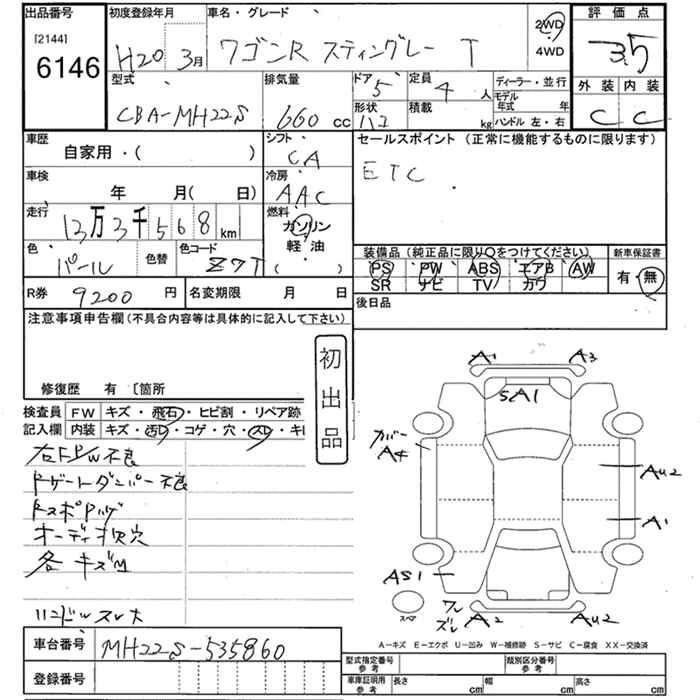 出品番号
[2144]
6146
初度登録年月
H20 3月
車名・グレード
ワゴンR スティングレー T
2WD
4WD
評価点
3.5
型式
CBA-MH22S
排気量
660 cc
ドア 5
定員 4 人
形状 ハコ
積載 kg
ディーラー・並行
モデル年式 年
ハンドル 左・右
外装 内装
C C
車歴
自家用・( )
シフト
CA
セールスポイント (正常に機能するものに限ります)
ETC
車検
年 月( 日)
冷房
AAC
走行
13万3千568km
燃料
ガソリン
軽油
( )
色
パール
色替
色コード
Z7T
装備品(純正品に限り○をつけてください)
PS PW ABS エアB AW
SR ナビ TV カワ
新車保証書
有・無
R券 9200 円
名変期限 月 日
後日品
注意事項申告欄(不具合内容等は具体的に記入して下さい)
修復歴 有 〔箇所
初出品
検査員
記入欄
FW キズ・飛石・ヒビ割・リペア跡
内装 キズ・汚レ・コゲ・穴・スレ・キレ
右FP/W不良
Fゲートダンパー不良
オーディオ欠穴
各キズM
ハンドルスレ大
A1 A3
SA1
カバー
A4
AU2
A1
AS1
ワレ
ズレ
A2 AU2
スペア
A-キズ E-エクボ U-凹み W-補修跡 S-サビ C-腐食 XX-交換済
車台番号
MH22S-535860
登録番号
型式指定番号
参考
類別区分番号
参考
車庫証明用
参考
長さ cm
幅 cm
高さ cm